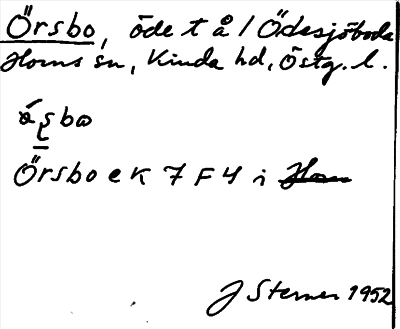 Örsbo, öde t å / Ödesjöboda
Horns sn, Kinda hd, Östg. l.
ó̤sbo
Örsbo ek 7 F 4 i Horn
J Sterner 1952